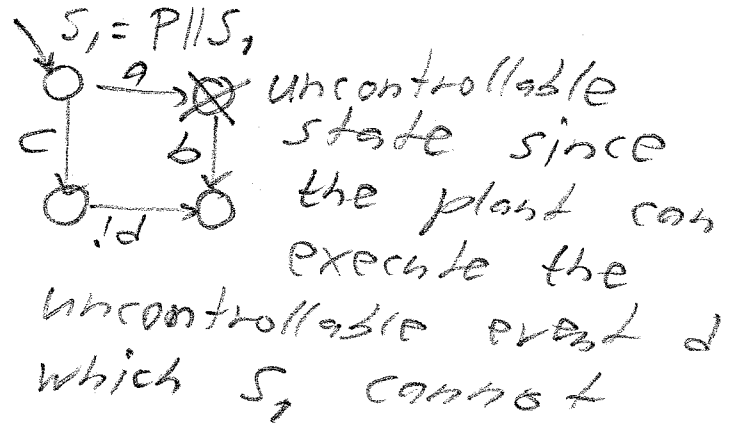 S₁ = P||S₁
a
uncontrollable
c
b
state since
the plant can
!d
execute the
uncontrollable event d
which S₁ cannot